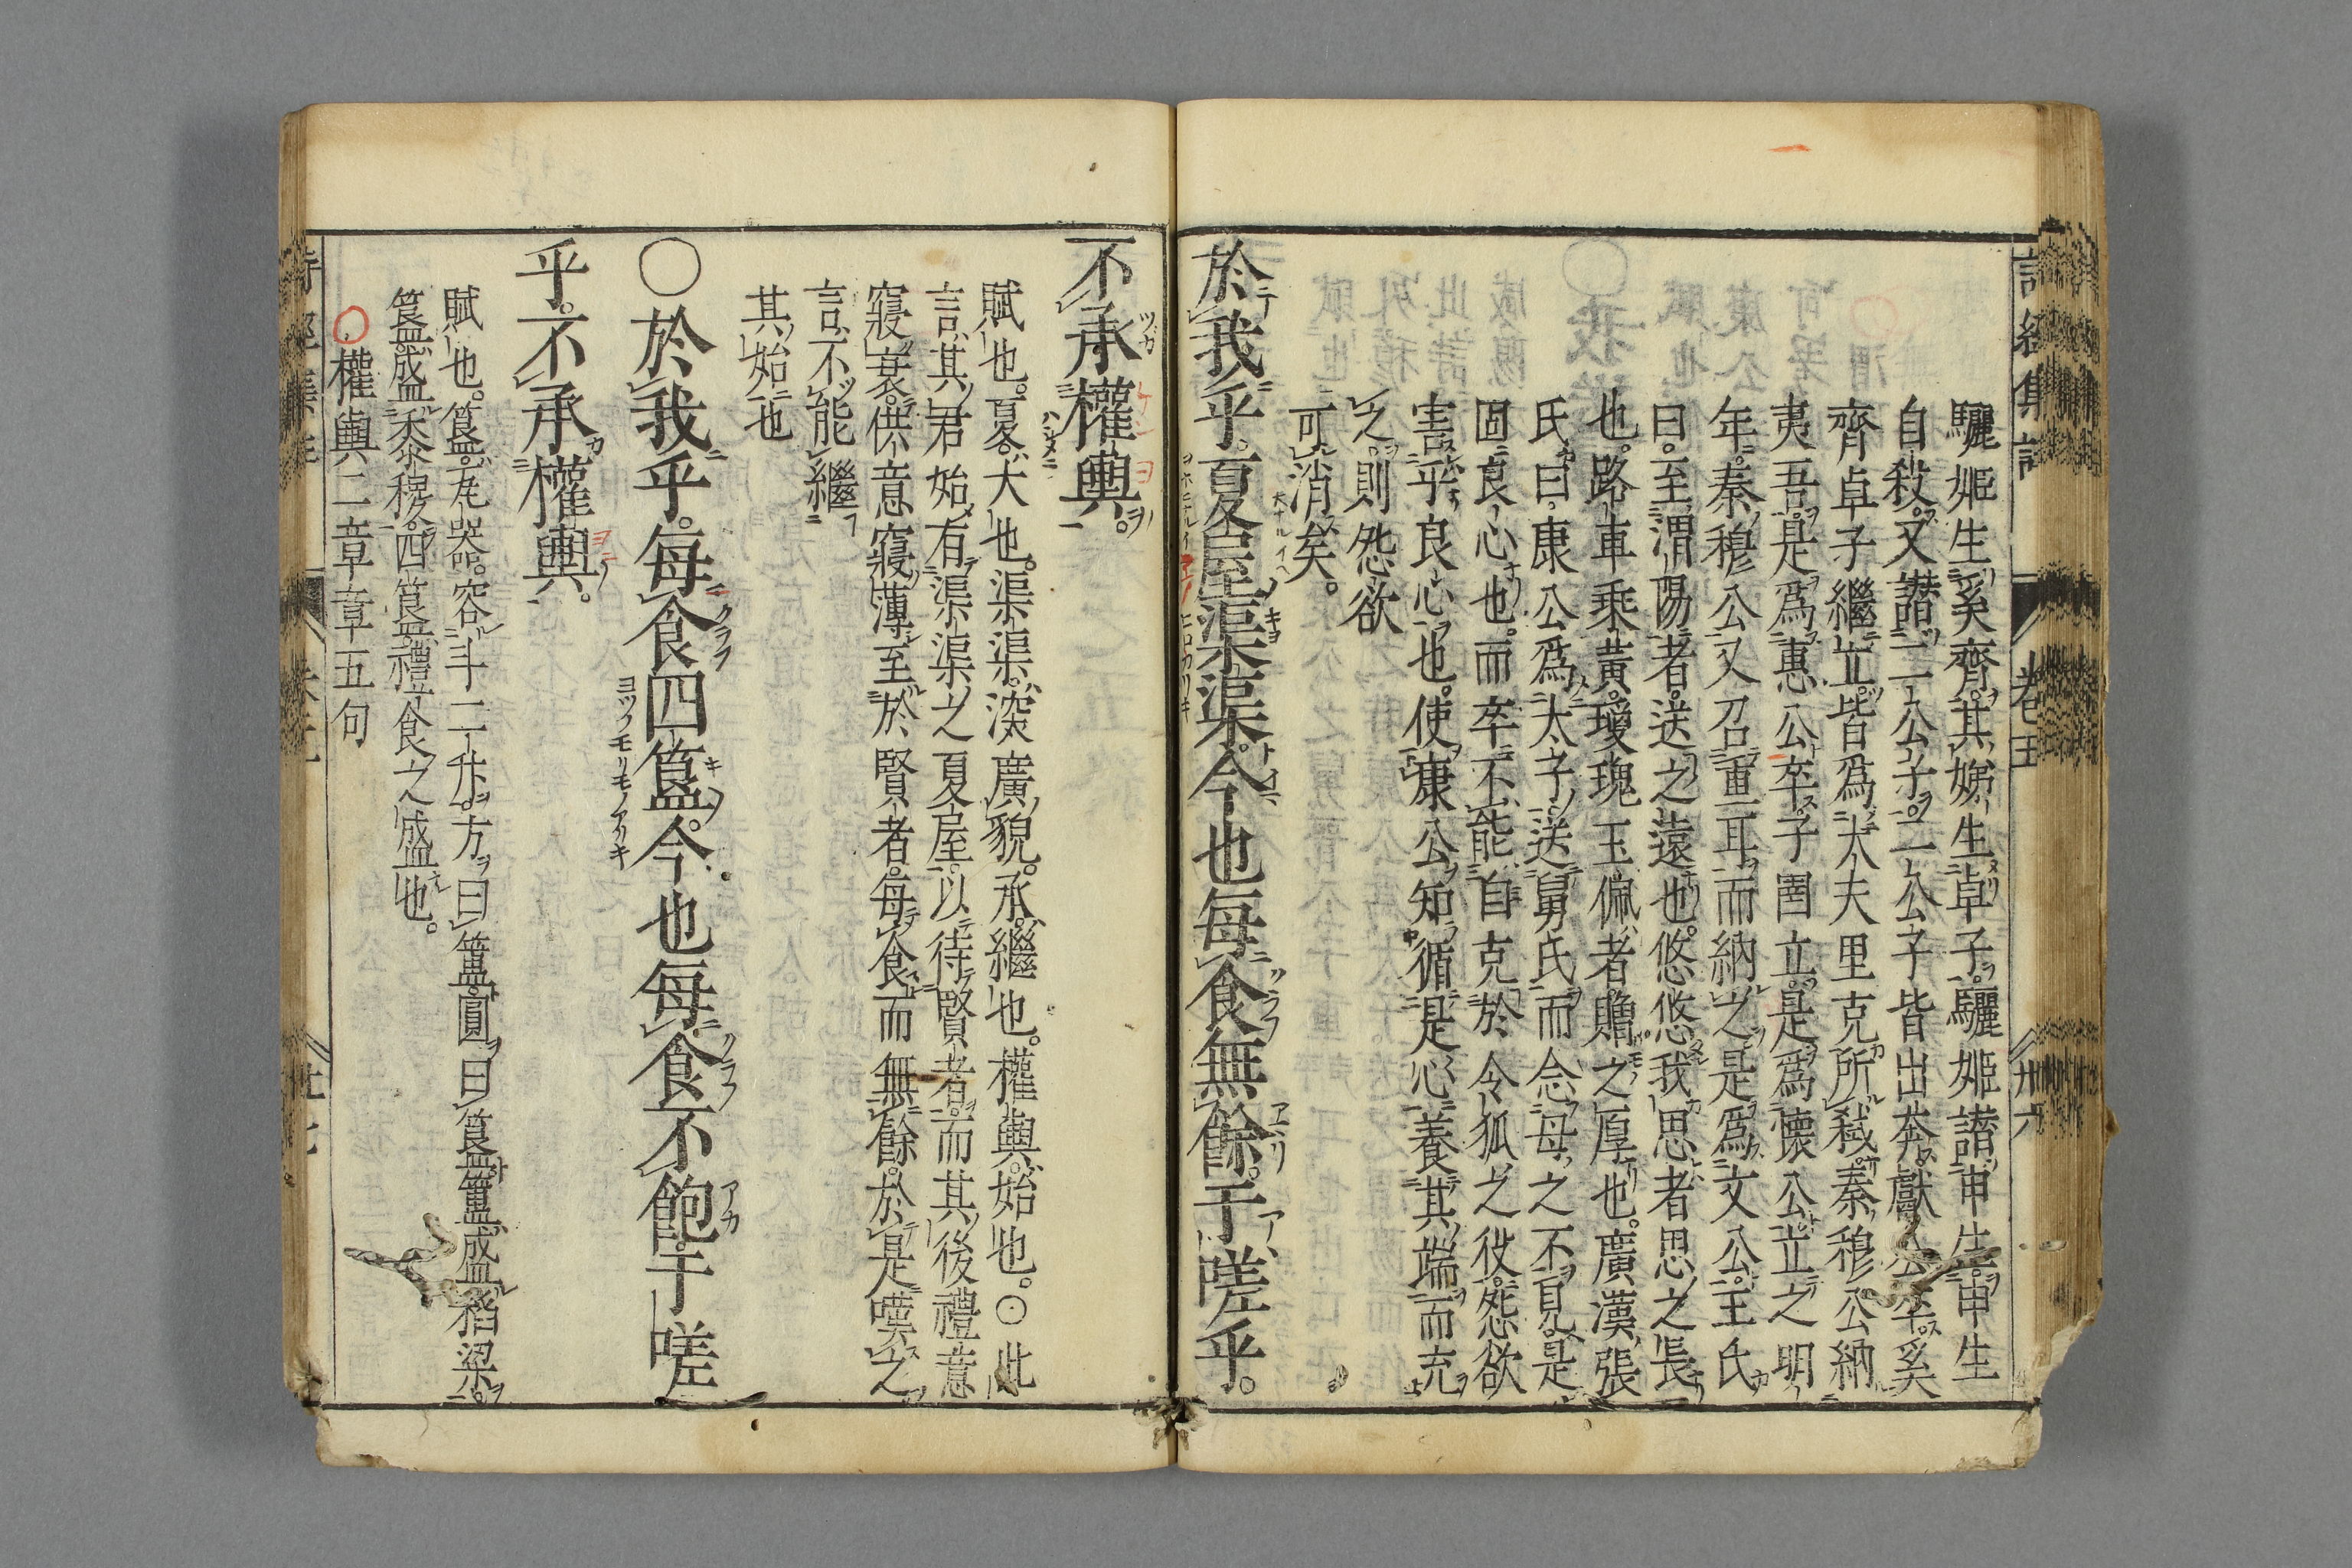 詩經集註 卷五 卅六
驪姬生奚齊。其娣生卓子。驪姬譖申生。申生
自殺。又譖二公子。二公子皆出奔。獻公卒。奚
齊卓子繼立。皆爲大夫里克所弑。秦穆公納
夷吾。是爲惠公。卒。子圉立。是爲懷公。立之明
年。秦穆公又召重耳而納之。是爲文公。王氏
曰。至渭陽者。送之遠也。悠悠我思者。思之長
也。路車乘黃。瓊瑰玉佩者。贈之厚也。廣漢張
氏曰。康公爲太子。送舅氏而念母之不見。是
固良心也。而卒不能自克於令狐之役。怨欲
害乎良心也。使康公知循是心。養其端而充
之。則怨欲
可消矣。
於我乎。夏屋渠渠。今也每食無餘。于嗟乎。
不承權輿。
賦也。夏。大也。渠渠。深廣貌。承。繼也。權輿。始也。○此
言其君始有渠渠之夏屋。以待賢者。而其後禮意
寖衰。供意寖薄。至於賢者。每食而無餘。於是嘆之
言不能繼
其始也
○於我乎。每食四簋。今也每食不飽。于嗟
乎。不承權輿。
賦也。簋。瓦器。容斗二升。方曰簠。圓曰簋。簠盛稻粱。
簋盛黍稷。四簋。禮食之盛也。
權輿二章章五句